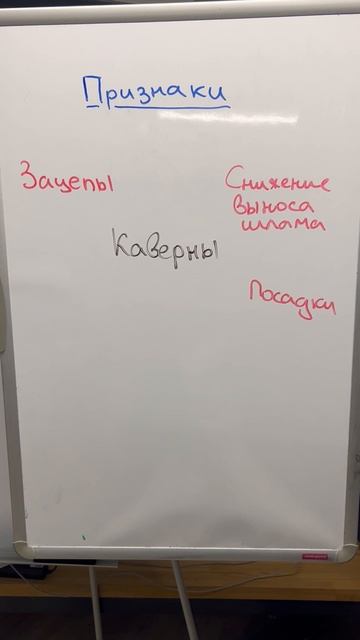 Признаки
Зацепы
Снижение
выноса
шлама
Каверны
Посадки